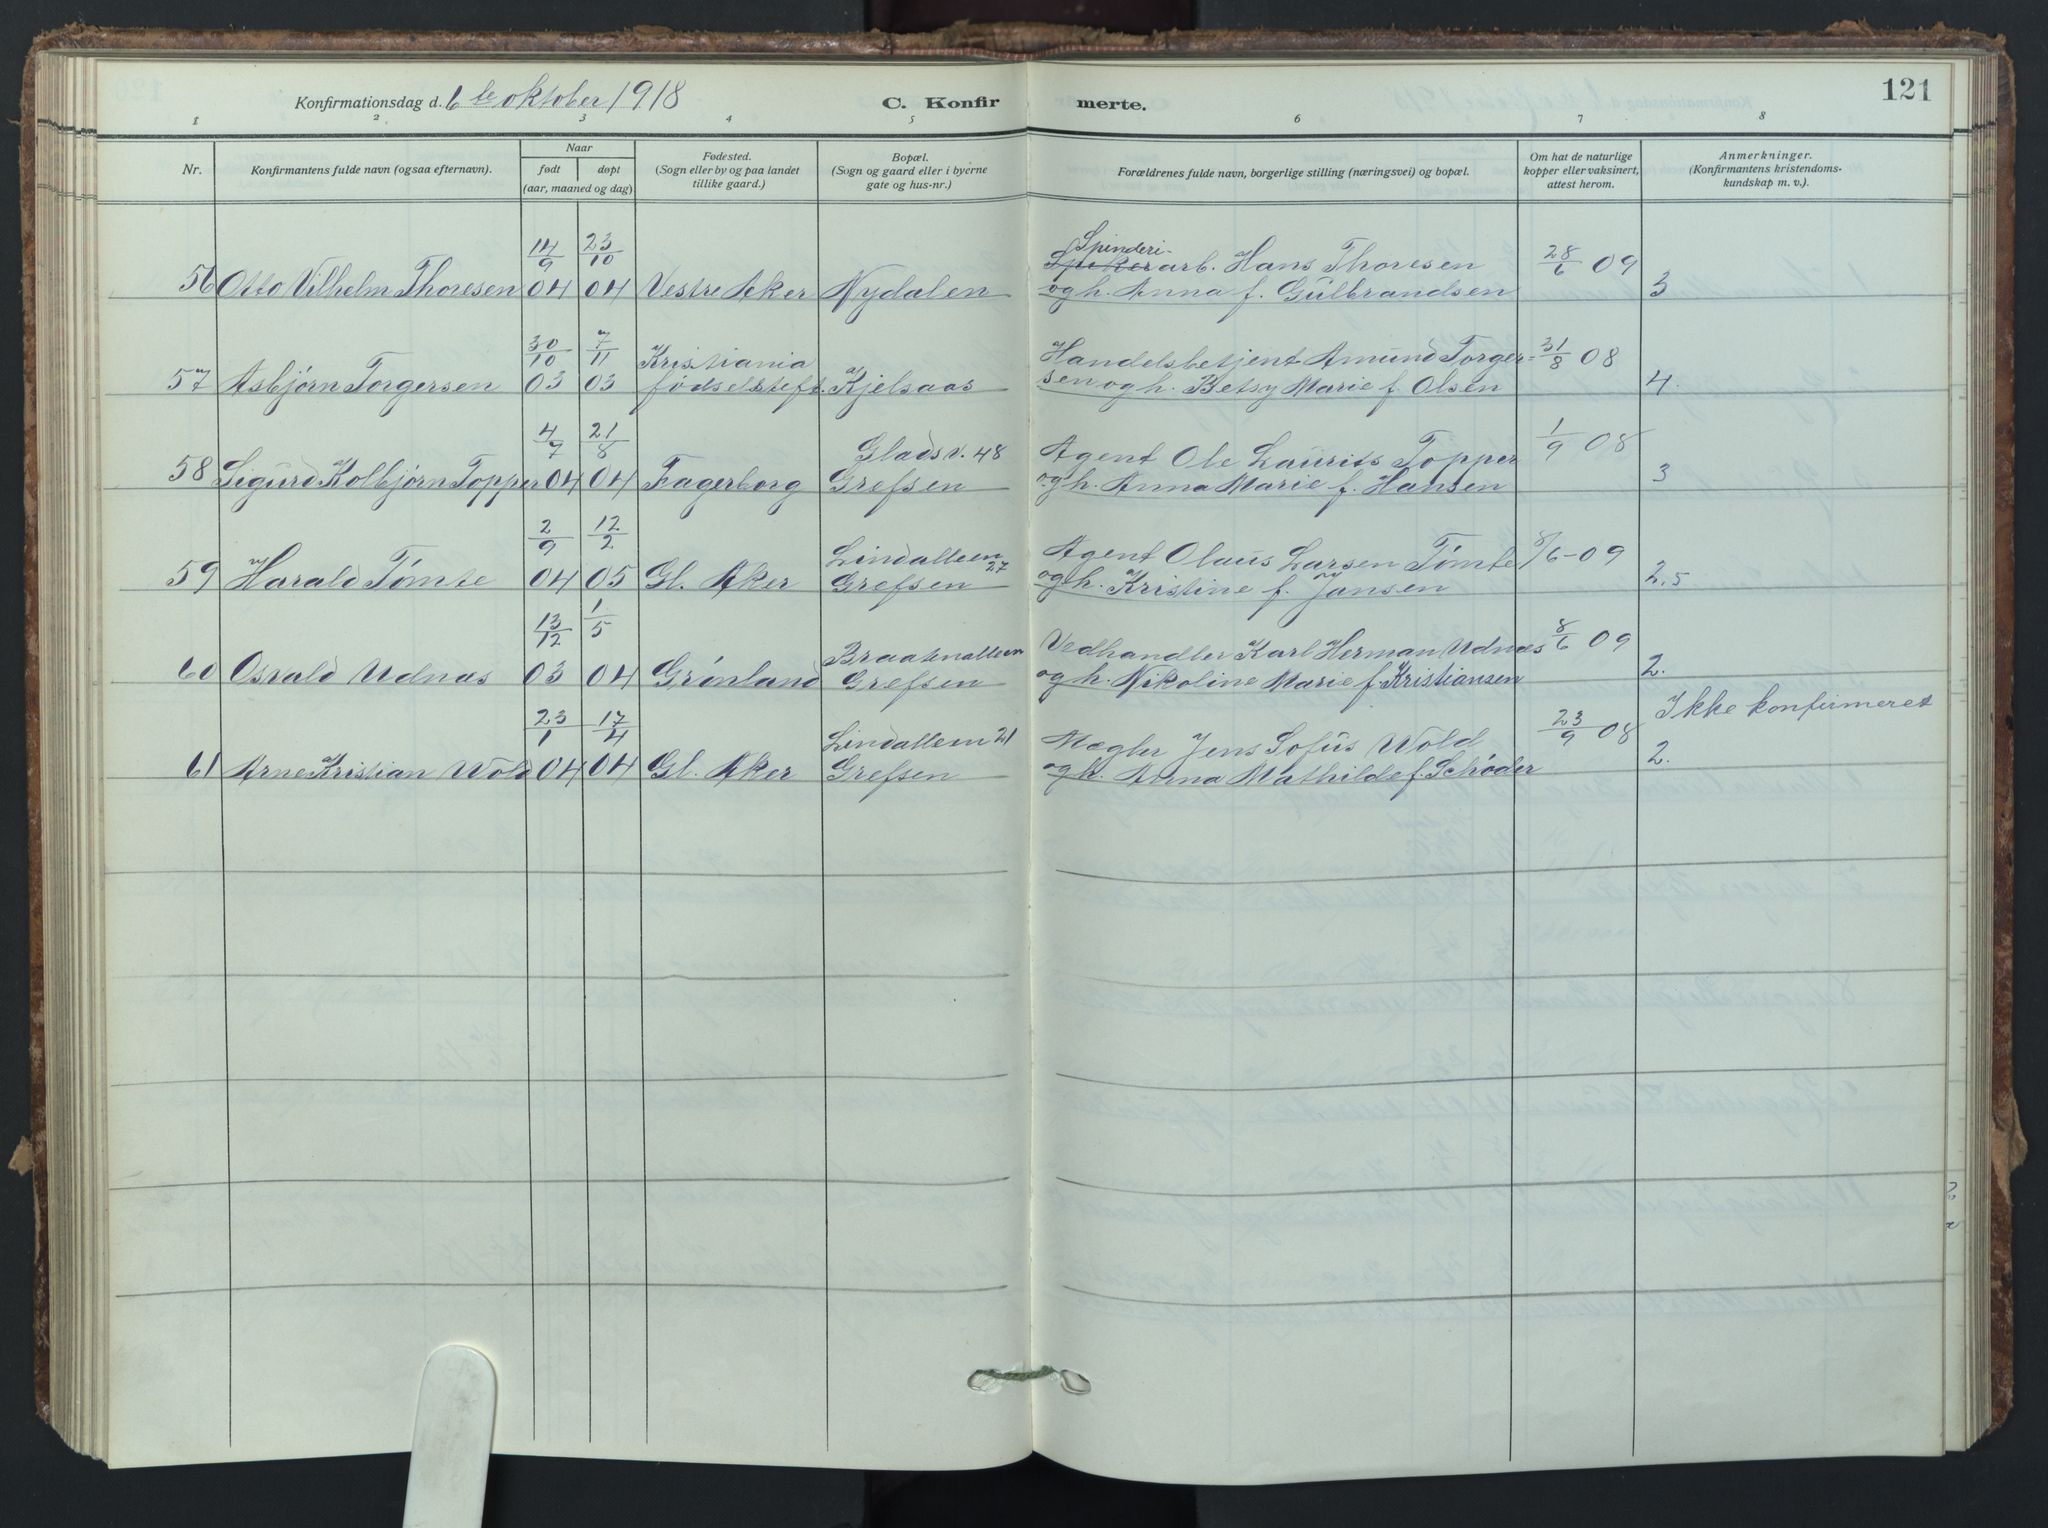 Konfirmationsdag d. 6te oktober 1918 C. Konfirmerte. 121
1 2 3 4 5 6 7 8
Nr. Konfirmantens fulde navn (ogsaa efternavn). Naar født døpt (aar, maaned og dag) Fødested. (Sogn eller by og paa landet tillike gaard.) Bopæl. (Sogn og gaard eller i byerne gate og hus-nr.) Forældrenes fulde navn, borgerlige stilling (næringsvei) og bopæl. Om hat de naturlige kopper eller vaksinert, attest herom. Anmerkninger. (Konfirmantens kristendomskundskap m. v.)
Spinderi-
14/9 23/10 arb. Hans Thoresen 28/6 09
56 Otto Vilhelm Thoresen 04 04 Vestre Aker Nydalen og h. Anna f. Gulbrandsen 3
30/10 7/11 Kristiania Handelsbetjent Amund Torger- 31/8 08
57 Asbjørn Torgersen 03 03 fødselsstift. Kjelsaas sen og h. Betsy Marie f. Olsen 4.
4/7 21/8 Glads v. 48 Agent Ole Laurits Topper 1/9 08
58 Sigurd Kolbjørn Topper 04 04 Fagerborg Grefsen og h. Anna Marie f. Hansen 3
2/9 12/2 Lindalleen 27 Agent Olaus Larsen Tømte 8/6-09
59 Harald Tømte 04 05 Gl. Aker Grefsen og h. Kristine f. Jansen 2.5
13/12 1/5 Braatenalleen Vedhandler Karl Herman Udnæs 8/6 09
60 Osvald Udnas 03 04 Grønland Grefsen og h. Nikoline Marie f. Kristiansen 2.
23/1 17/4 Lindalleen 21 Mægler Jens Sofus Wold 23/9 08 Ikke konfirmeret
61 Arne Kristian Wold 04 04 Gl. Aker Grefsen og h. Anna Mathilde f. Schøder 2.